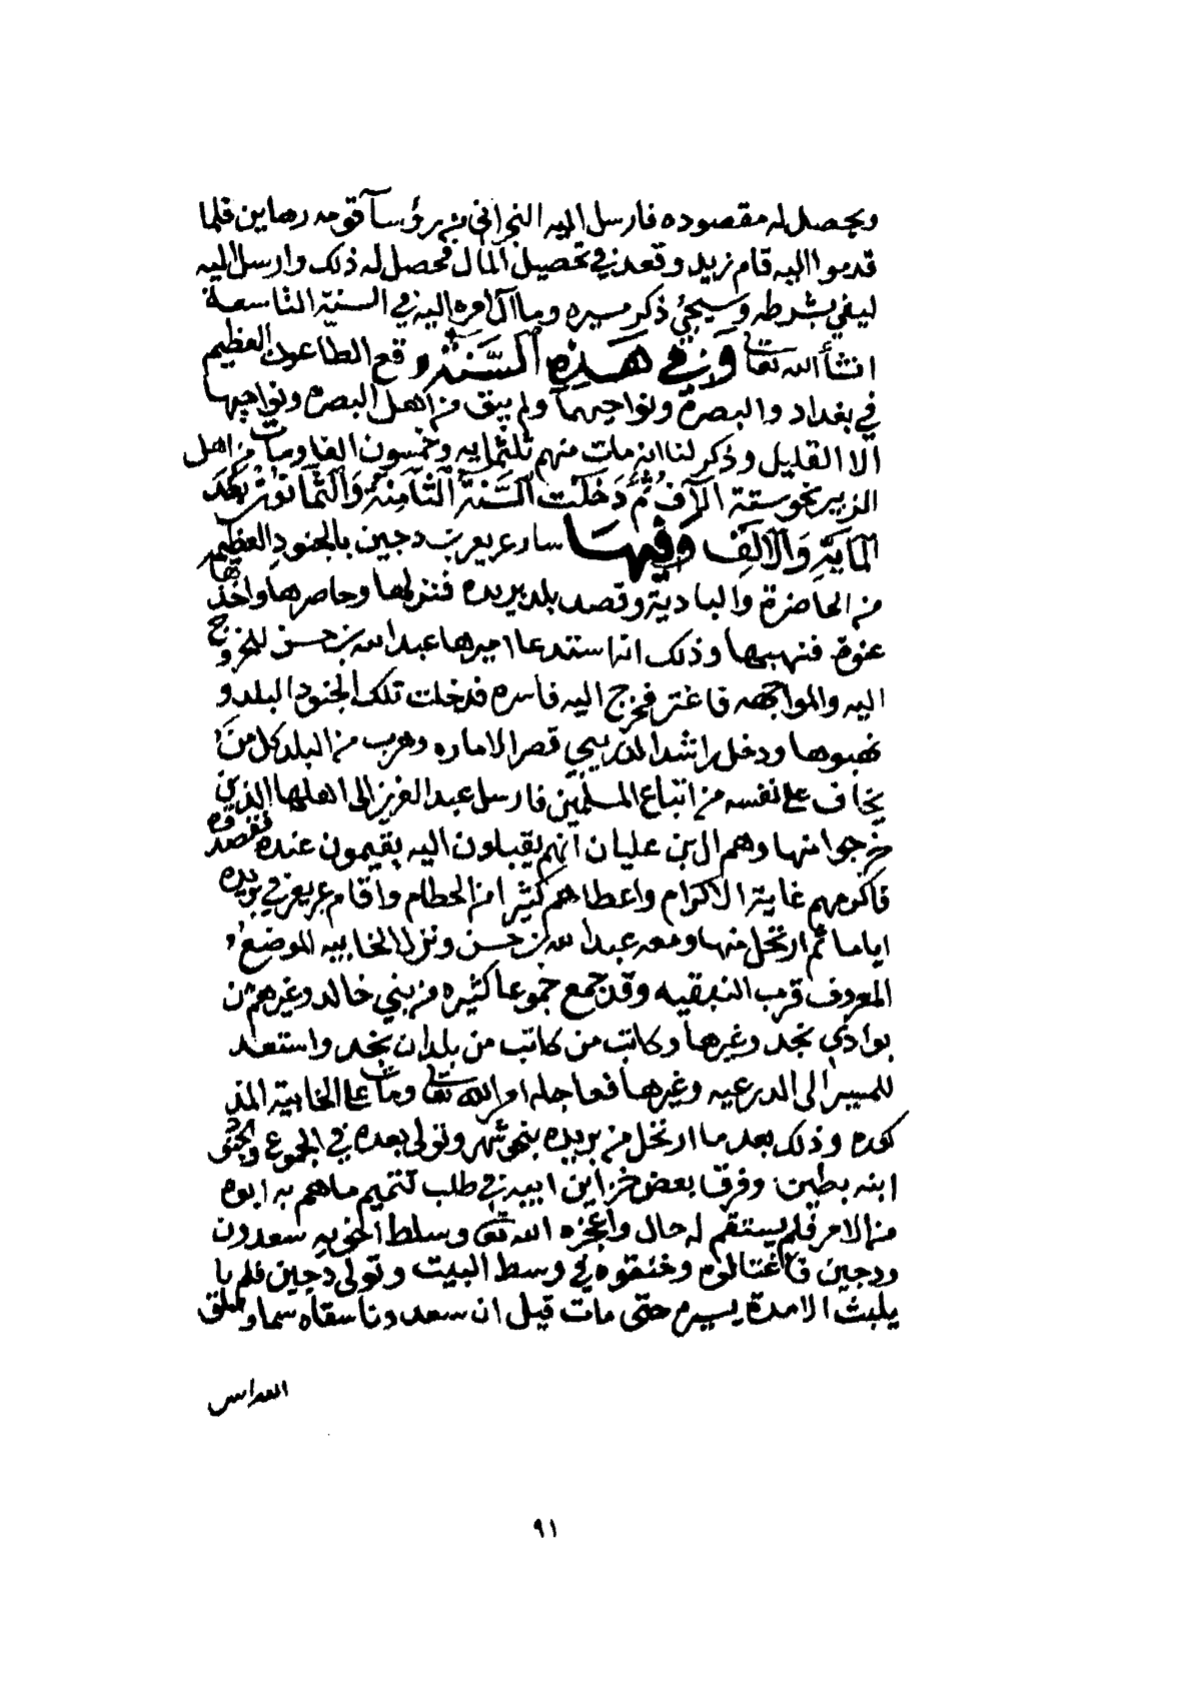 ويحصل له مقصوده فارسل اليه النجراني من رؤسآ قومه رهاين فلما
قدموا اليه قام زيد وقعد في تحصيل المال فحصل له ذلك وارسل اليه
ليفي بشرطه وسيجئ ذكر مسيره وما آل امره اليه في السنة التاسعة
انشأ الله تعا وفي هذه السنة وقع الطاعون العظيم
في بغداد والبصرة ونواحيهما ولم يبق من اهل البصره ونواحيها
الا القليل وذكر لنا انه مات منهم ثلثمايه وخمسون الفا ومات من اهل
الزبير نحو ستة الآف ثم دخلت السنة الثامنة والثمانون بعد
الماية والالف وفيها سار عريعر بن دجين بالجنود العظيمه
من الحاضرة والبادية وقصد بلد بريده فنزلها وحاصرها واخذها
عنوة فنهبها وذلك انه استدعا اميرها عبد الله بن حسن للخروج
اليه والمواجهه فاغتر فخرج اليه فاسره فدخلت تلك الجنود البلد و
نهبوها ودخل راشد الدريبي قصر الاماره وهرب من البلد كل من
يخاف على نفسه من اتباع المسلمين فارسل عبد العزيز الى اهلها الذين
خرجوا منها وهم ال بن عليان انهم يقبلون اليه يقيمون عنده فقصدوه
فاكرمهم غاية الاكرام واعطاهم كثيرا من الحطام واقام عريعر في بريده
اياما ثم ارتحل منها ومعه عبد الله بن حسن ونزل الخابيه الموضع
المعروف قرب النبقيه وقد جمع جموعا كثيره من بني خالد وغيرهم من
بوادي نجد وغيرها وكاتب من كاتب من بلدان نجد واستعد
للمسير الى الدرعيه وغيرها فعاجله امر الله تعا ومات على الخابية المذ
كوره وذلك بعد ما ارتحل من بريده بنحو شهر وتولى بعده في الجموع والجنود
ابنه بطين وفرق بعض خزاين ابيه في طلب تتميم ما هم به ابوه
من الامر فلم يستقم له حال واعجزه الله تعا وسلط اخويه سعدون
ودجين فاغتالوه وخنقوه في وسط البيت وتولى دجين فلم
يلبث الا مدة يسيره حتى مات قيل ان سعدونا سقاه سما
٩١